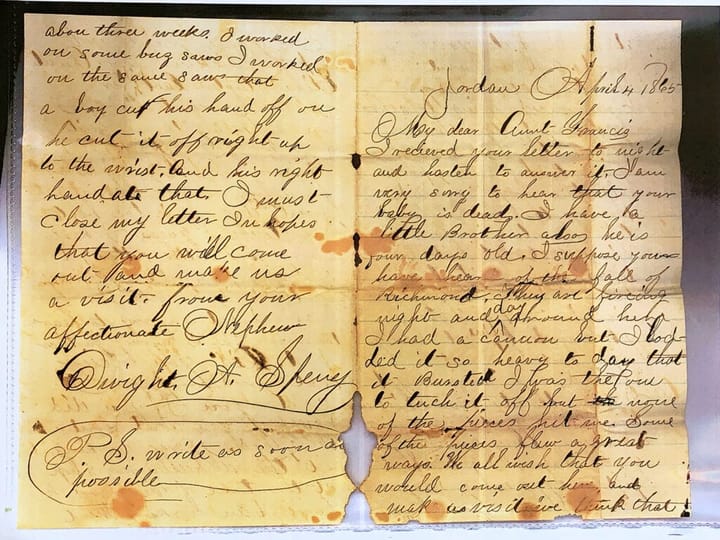 Jordan April 4 1865
My dear Aunt Francis
I recieved your letter to night
and hasten to answer it. I am
very sorry to hear that your
baby is dead. I have a
little Brother also he is
four days old. I suppose you
have hear of the fall of
Richmond. They are fireing
night and day around here
I had a cannon but I lod-
ded it so heavy to day that
it Bursted I was the one
to tuch it off but none
of the pieces hit me. Some
of the pieces flew a great
ways. We all wish that you
would come out here and
mak us visit we think that
about three weeks. I worked
on some buz saws I worked
on the same saws that
a boy cut his hand off on
he cut it off right up
to the wrist. And his right
hand ate that. I must
close my letter In hopes
that you will come
out and make us
a visit. from your
affectionate Nephew
Dwight. A. Spery
P. S. write as soon as
possible